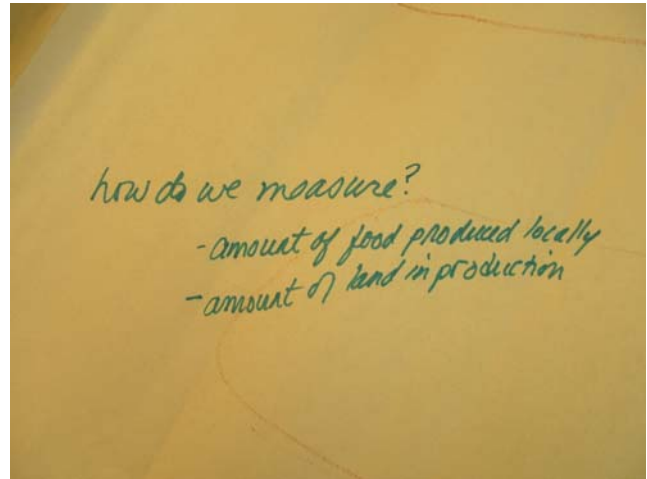 how do we measure?
- amount of food produced locally
- amount of land in production